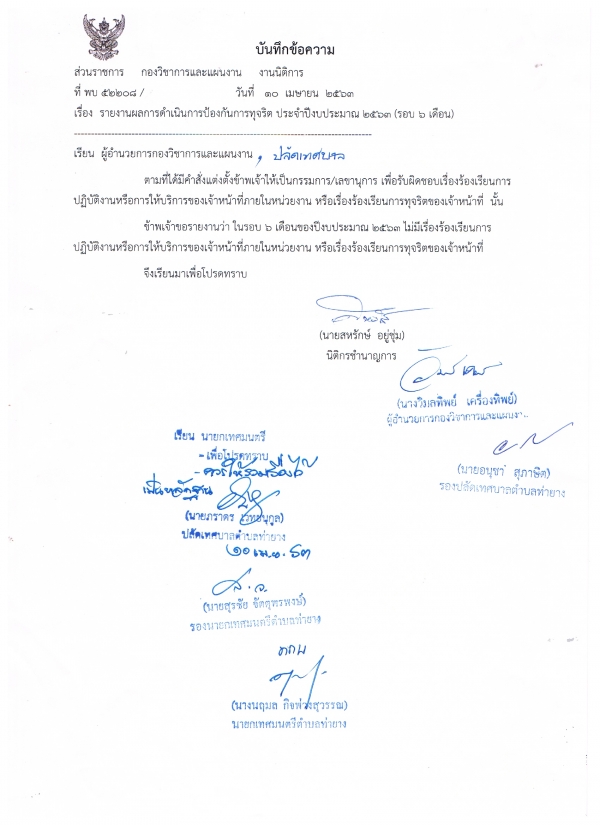 บันทึกข้อความ
ส่วนราชการ กองวิชาการและแผนงาน งานนิติการ
ที่ พบ ๕๒๒๐๘ / วันที่ ๑๐ เมษายน ๒๕๖๓
เรื่อง รายงานผลการดำเนินการป้องกันการทุจริต ประจำปีงบประมาณ ๒๕๖๓ (รอบ ๖ เดือน)
เรียน ผู้อำนวยการกองวิชาการและแผนงาน , ปลัดเทศบาล
ตามที่ได้มีคำสั่งแต่งตั้งข้าพเจ้าให้เป็นกรรมการ/เลขานุการ เพื่อรับผิดชอบเรื่องร้องเรียนการ
ปฏิบัติงานหรือการให้บริการของเจ้าหน้าที่ภายในหน่วยงาน หรือเรื่องร้องเรียนการทุจริตของเจ้าหน้าที่ นั้น
ข้าพเจ้าขอรายงานว่า ในรอบ ๖ เดือนของปีงบประมาณ ๒๕๖๓ ไม่มีเรื่องร้องเรียนการ
ปฏิบัติงานหรือการให้บริการของเจ้าหน้าที่ภายในหน่วยงาน หรือเรื่องร้องเรียนการทุจริตของเจ้าหน้าที่
จึงเรียนมาเพื่อโปรดทราบ
(นายสหรักษ์ อยู่ชุ่ม)
นิติกรชำนาญการ
(นางวิมลทิพย์ เครื่องทิพย์)
ผู้อำนวยการกองวิชาการและแผนงาน
เรียน นายกเทศมนตรี
- เพื่อโปรดทราบ
- ควรให้รวมเรื่องไว้
เป็นหลักฐาน
(นายอนุชา สุภาษิต)
รองปลัดเทศบาลตำบลท่ายาง
(นายภราดร เวทยนุกูล)
ปลัดเทศบาลตำบลท่ายาง
๑๐ เม.ย. ๖๓
(นายสุรชัย จัตตุพรพงษ์)
รองนายกเทศมนตรีตำบลท่ายาง
ทราบ
(นางนฤมล กิจพ่วงสุวรรณ)
นายกเทศมนตรีตำบลท่ายาง